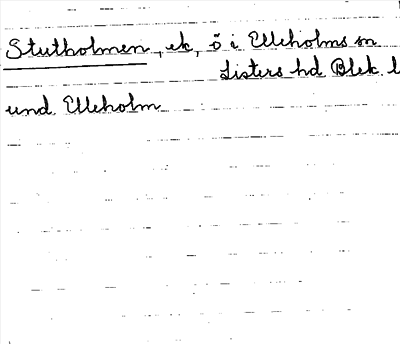 Stutholmen, ek, ö i Elleholms sn
Listers hd Blek. l
und. Elleholm